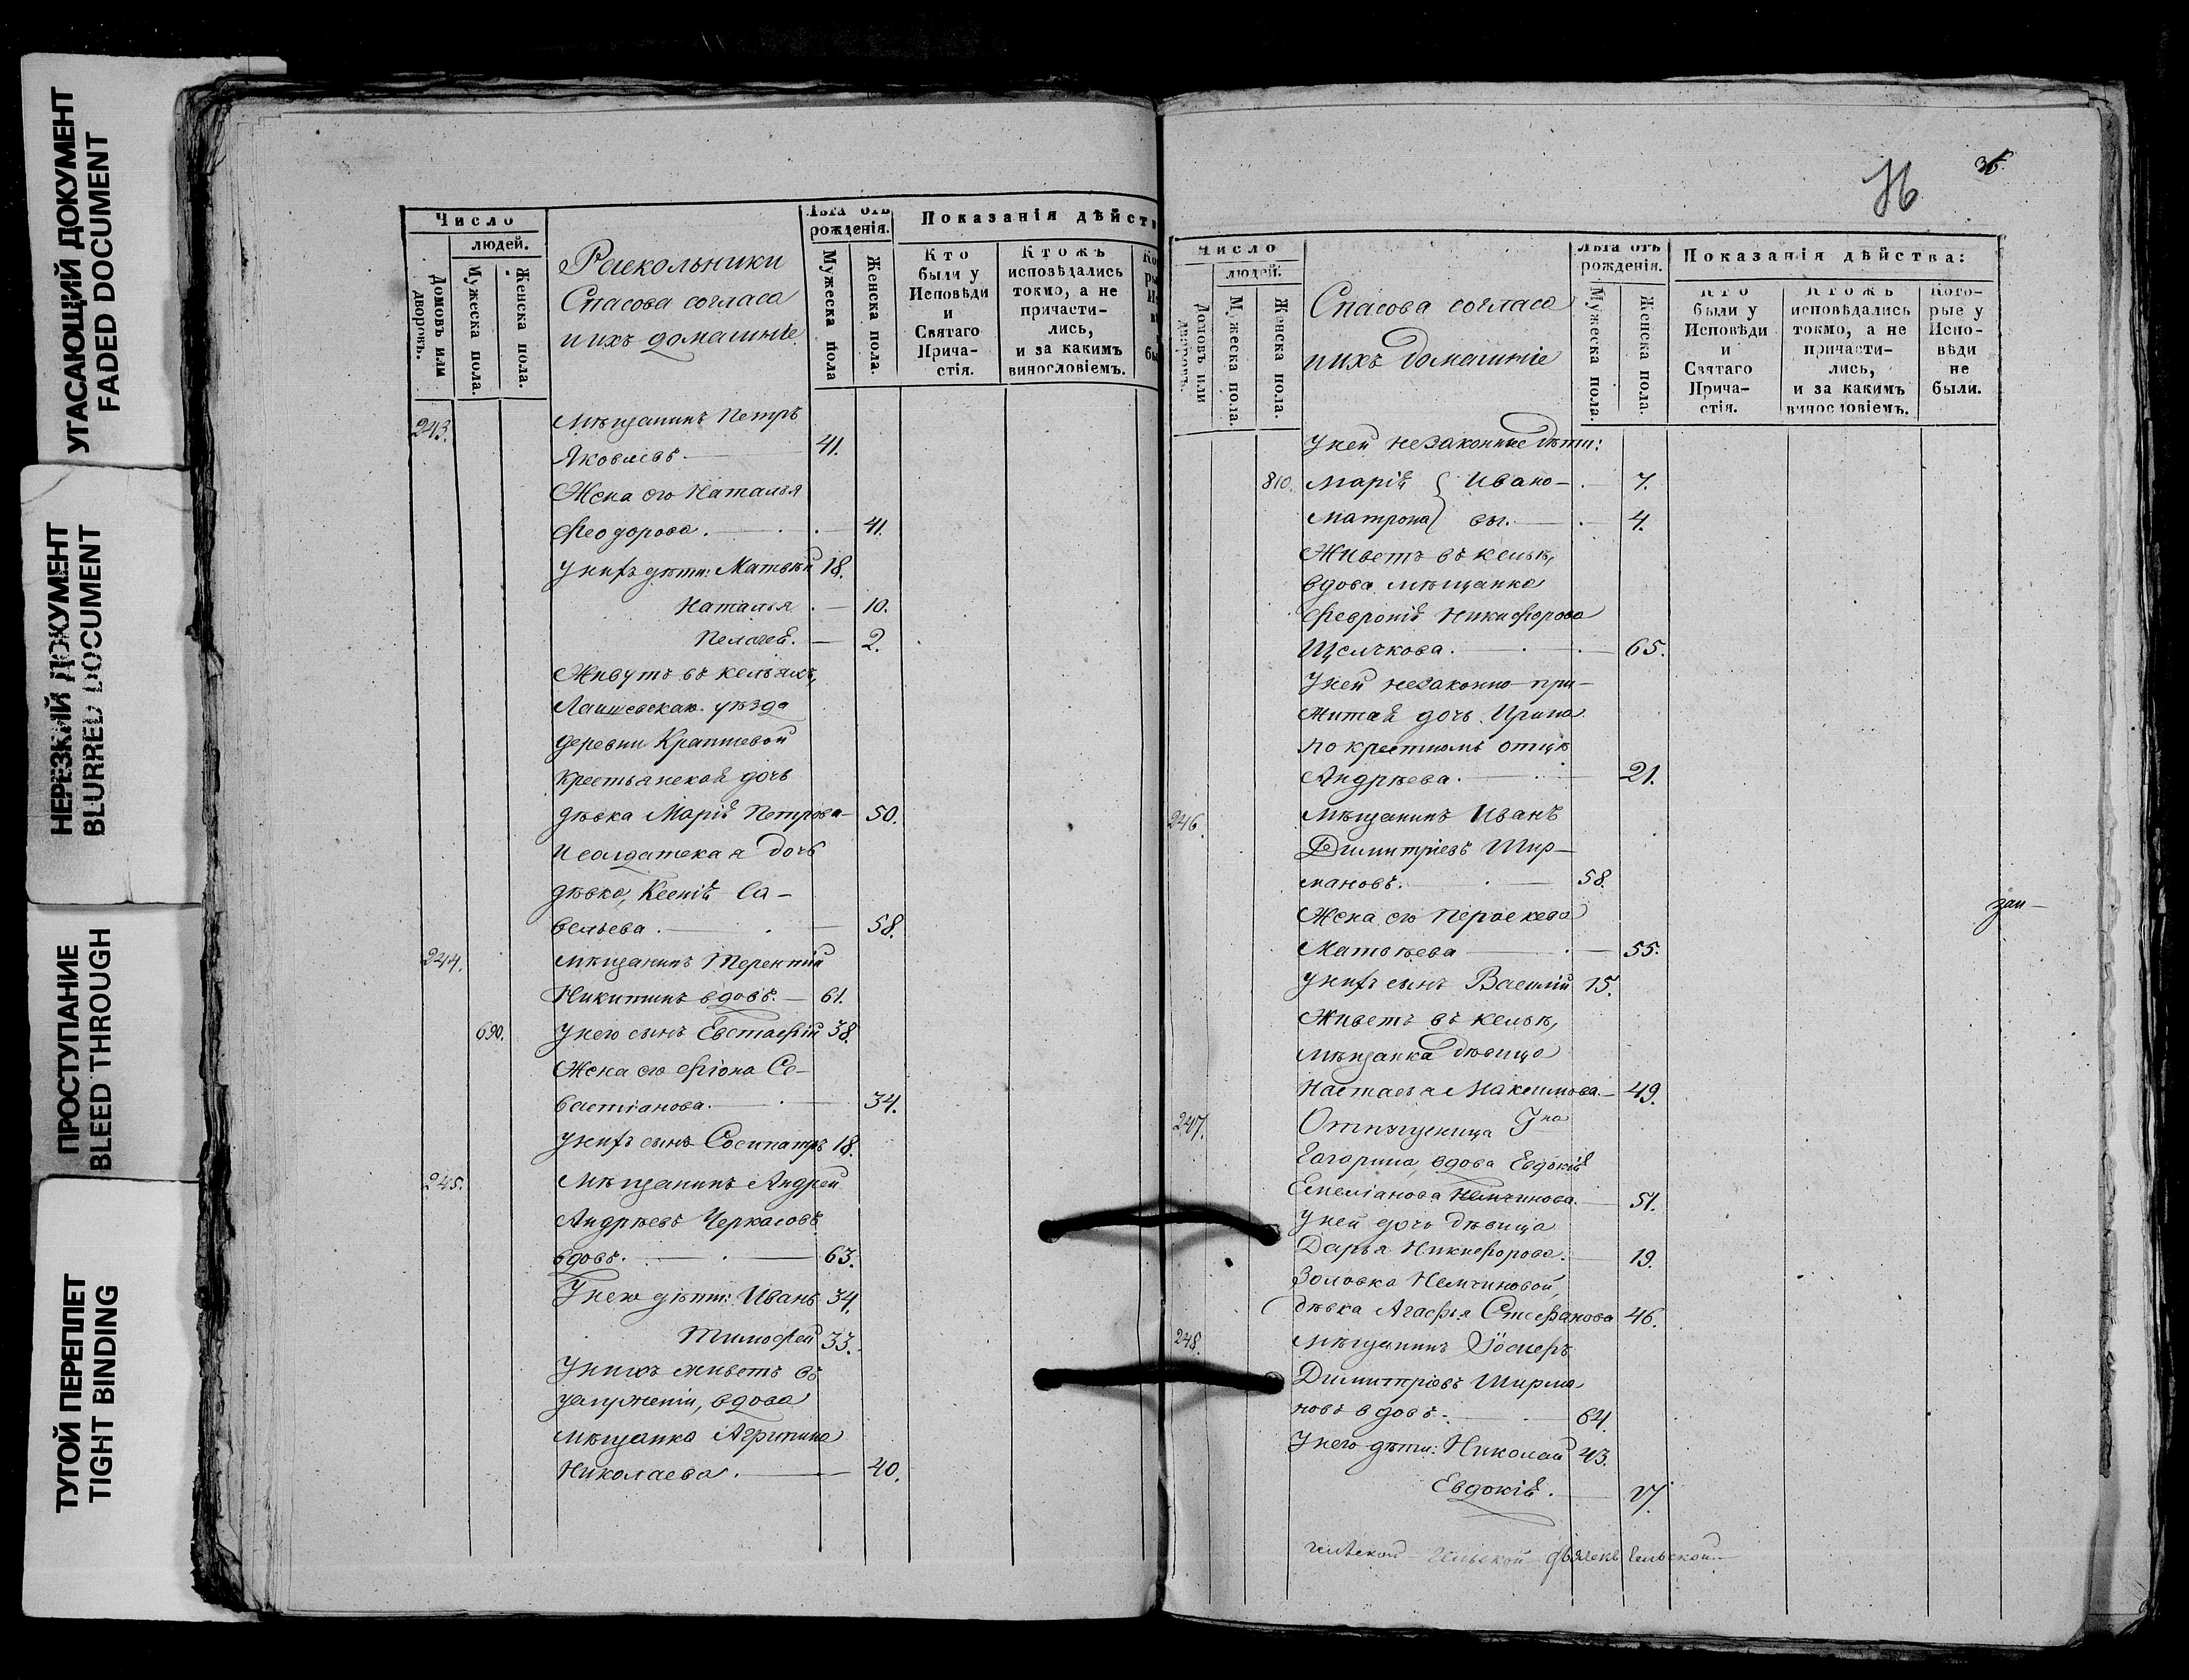 УГАСАЮЩИЙ ДОКУМЕНТ
FADED DOCUMENT
НЕРЕЗКИЙ ДОКУМЕНТ
BLURRED DOCUMENT
ПРОСТУПАНИЕ
BLEED THROUGH
ТУГОЙ ПЕРЕПЛЕТ
TIGHT BINDING
Число
людей.
Домовъ или дворовъ.
Мужеска пола.
Женска пола.
Раскольники
Спасова согласа
и ихъ домашніе
Лѣта отъ рожденія.
Мужеска пола
Женска пола.
Показанія дѣйств
Кто были у Исповѣди и Святаго Прича-стія.
Ктожъ исповѣдались токмо, а не причасти-лись, и за какимъ винословіемъ.
243. Мѣщанинъ Петръ
Яковлевъ. — 41.
Жена его Наталья
Феодорова. — 41.
У нихъ дѣти: Матвѣй 18.
Наталья — 10.
Пелагея. — 2.
Живутъ въ кельяхъ,
Лаишевскаго уѣзда
деревни
крестьянская дочь
дѣвка Марія Петрова — 50.
и солдатская дочь
дѣвка, Ксенія Са-
вельева. — 58.
244. Мѣщанинъ Терентій
Никитинъ вдовъ. — 61.
690. У него сынъ Евстафій 38.
Жена его Фіона Се-
вастіанова. — 34.
У нихъ сынъ Сосипатръ 18.
245. Мѣщанинъ Андрей
Андрѣевъ Черкасовъ
вдовъ. — 63.
У него дѣти: Иванъ 34.
Тимофей 33.
У нихъ живетъ въ
услуженіи, вдова
мѣщанка Агрипина
Николаева. — 40.
36
36.
Число
людей.
Домовъ или дворовъ.
Мужеска пола.
Женска пола.
Спасова согласа
и ихъ домашніе
Лѣта отъ рожденія.
Мужеска пола.
Женска пола.
Показанія дѣйства:
Кто были у Исповѣди и Святаго Прича-стія.
Ктожъ исповѣдались токмо, а не причасти-лись, и за какимъ винословіемъ.
Кото-рые у Испо-вѣди не были.
У ней незаконные дѣти:
810. Марія } Ивано- — 7.
Матрона } вы. — 4.
Живетъ въ кельѣ,
вдова мѣщанка
Февронія Никифорова
Щелчкова. — 65.
У ней незаконно при-
житая дочь Ирина
по крестномъ отцѣ
Андрѣева. — 21.
246. Мѣщанинъ Иванъ
Димитріевъ Шир-
мановъ. — 58.
Жена его Параскева
Матвѣева — 55.
У нихъ сынъ Василій 15.
Живетъ въ кельѣ,
мѣщанка дѣвица
Настасья Максимова. — 49.
247. Отпущеница Гна
Гагарина, вдова Евдокія
Емеліанова Немчинова. 51.
У ней дочь дѣвица
Дарья Никифорова. — 19.
Золовка Немчиновой,
дѣвка Агафья Стефанова 46.
248. Мѣщанинъ
Димитріевъ Ширма-
новъ вдовъ. — 64.
У него дѣти: Николай 43.
Евдокія. — 27.